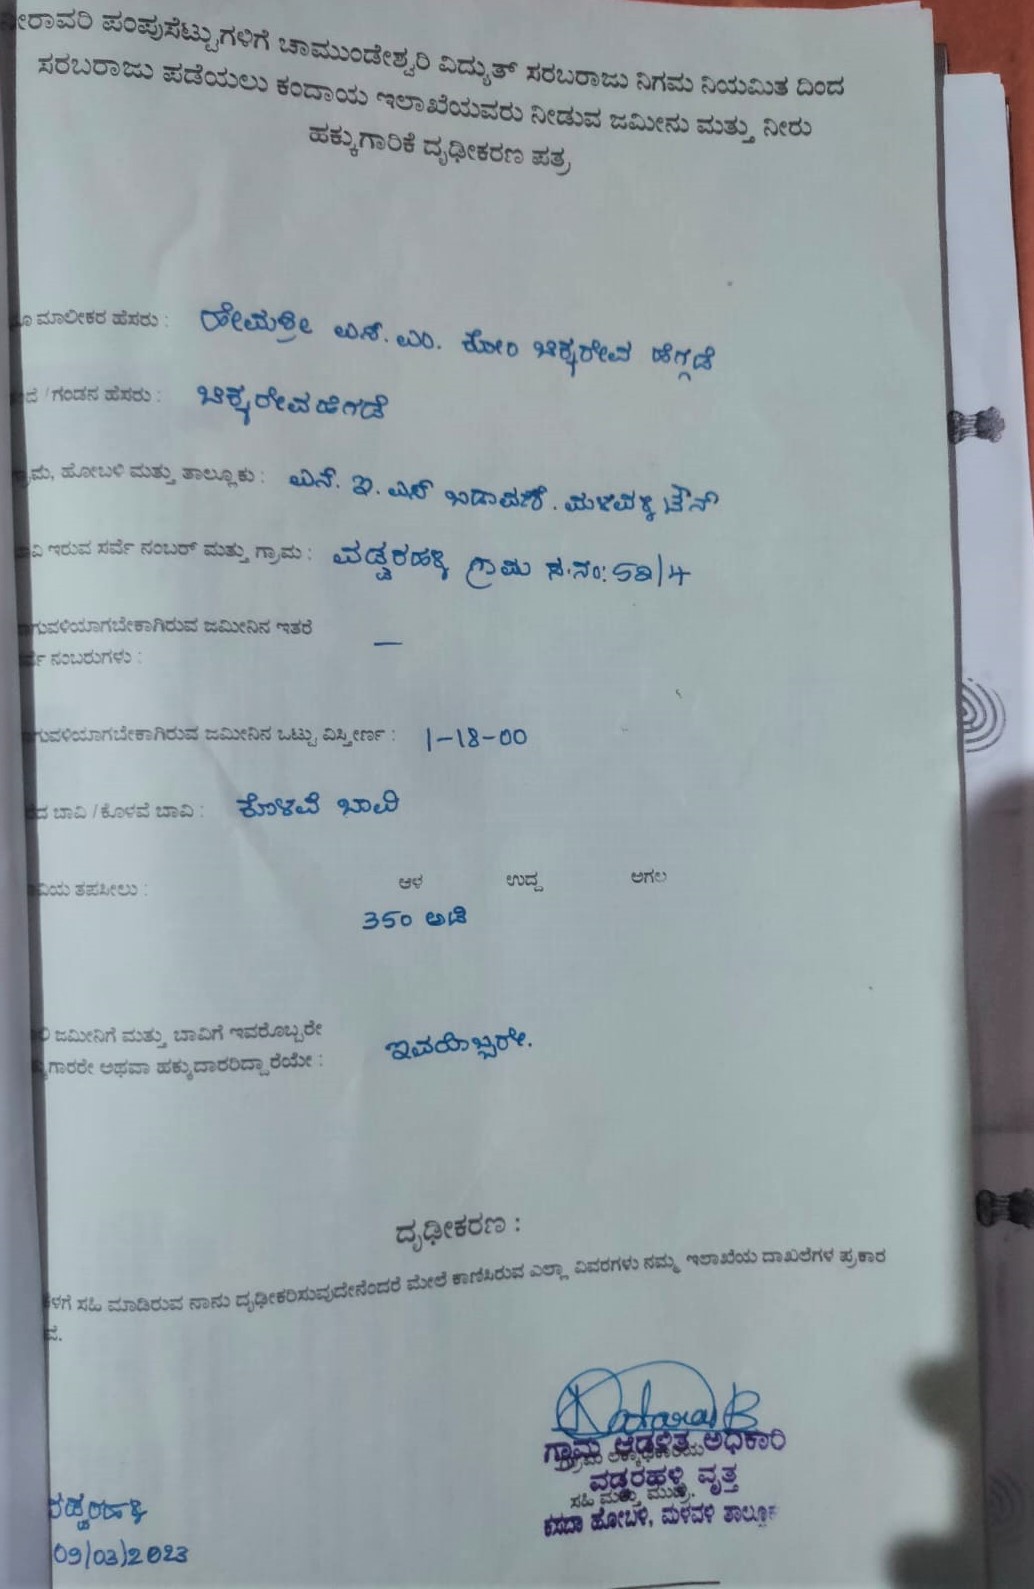 ನೀರಾವರಿ ಪಂಪುಸೆಟ್ಟುಗಳಿಗೆ ಚಾಮುಂಡೇಶ್ವರಿ ವಿದ್ಯುತ್ ಸರಬರಾಜು ನಿಗಮ ನಿಯಮಿತ ದಿಂದ
ಸರಬರಾಜು ಪಡೆಯಲು ಕಂದಾಯ ಇಲಾಖೆಯವರು ನೀಡುವ ಜಮೀನು ಮತ್ತು ನೀರು
ಹಕ್ಕುಗಾರಿಕೆ ದೃಢೀಕರಣ ಪತ್ರ
ಮಾಲೀಕರ ಹೆಸರು : ಹೇಮಶ್ರೀ ಎಸ್. ಎಂ. ಕೋಂ ಚಿಕ್ಕದೇವ ಹೆಗ್ಗಡೆ
/ಗಂಡನ ಹೆಸರು : ಚಿಕ್ಕದೇವಹೆಗಡೆ
ಗ್ರಾಮ, ಹೋಬಳಿ ಮತ್ತು ತಾಲ್ಲೂಕು : ಎನ್. ಇ. ಎಸ್ ಬಡಾವಣೆ. ಮಳವಳ್ಳಿ ಟೌನ್
ಇರುವ ಸರ್ವೆ ನಂಬರ್ ಮತ್ತು ಗ್ರಾಮ : ವಡ್ಡರಹಳ್ಳಿ ಗ್ರಾಮ ಸ.ನಂ: 52/4
ಸಾಗುವಳಿಯಾಗಬೇಕಾಗಿರುವ ಜಮೀನಿನ ಇತರೆ
ಸರ್ವೆ ನಂಬರುಗಳು : —
ಸಾಗುವಳಿಯಾಗಬೇಕಾಗಿರುವ ಜಮೀನಿನ ಒಟ್ಟು ವಿಸ್ತೀರ್ಣ : 1-18-00
ತೆರೆದ ಬಾವಿ /ಕೊಳವೆ ಬಾವಿ : ಕೊಳವೆ ಬಾವಿ
ಬಾವಿಯ ತಪಸೀಲು : ಆಳ ಉದ್ದ ಅಗಲ
350 ಅಡಿ
ಜಮೀನಿಗೆ ಮತ್ತು ಬಾವಿಗೆ ಇವರೊಬ್ಬರೇ
ಹಕ್ಕುಗಾರರೇ ಅಥವಾ ಹಕ್ಕುದಾರರಿದ್ದಾರೆಯೇ : ಇವರೊಬ್ಬರೇ.
ದೃಢೀಕರಣ :
ಕೆಳಗೆ ಸಹಿ ಮಾಡಿರುವ ನಾನು ದೃಢೀಕರಿಸುವುದೇನೆಂದರೆ ಮೇಲೆ ಕಾಣಿಸಿರುವ ಎಲ್ಲಾ ವಿವರಗಳು ನಮ್ಮ ಇಲಾಖೆಯ ದಾಖಲೆಗಳ ಪ್ರಕಾರ
ಗ್ರಾಮ ಆಡಳಿತ ಅಧಿಕಾರಿ
ವಡ್ಡರಹಳ್ಳಿ ವೃತ್ತ
ಸಹಿ ಮತ್ತು ಮುದ್ರೆ.
ಕಸಬಾ ಹೋಬಳಿ, ಮಳವಳ್ಳಿ ತಾಲ್ಲೂಕು
ವಡ್ಡರಹಳ್ಳಿ
09/03/2023